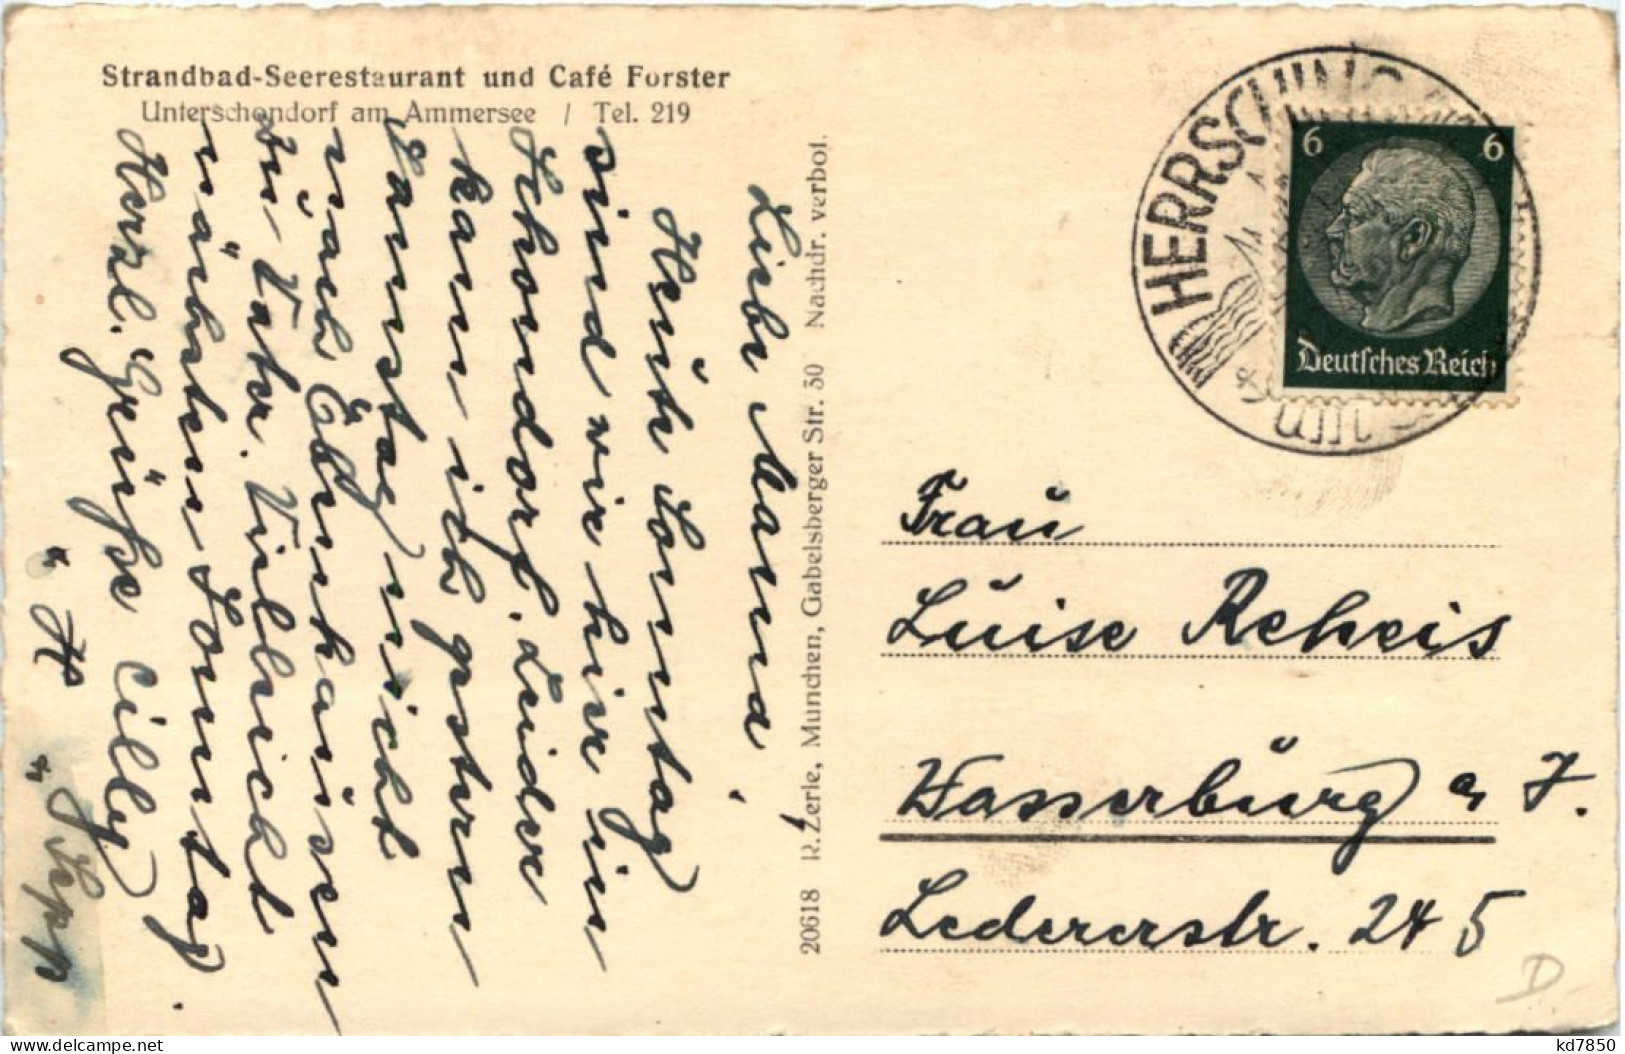 Strandbad-Seerestaurant und Café Forster
Unterschondorf am Ammersee / Tel. 219
Liebe Mama!
Heute Sonntag
sind wir hier in
Schondorf. Leider
kam ich gestern
Samstag nicht
nach
zu Vater. Vielleicht
nächsten Sonntag.
Herzl. Grüße Cilly
" H
" Sepp
20618 R. Zerle, München, Gabelsberger Str. 30 Nachdr. verbot.
HERRSCHING
6 6
Deutsches Reich
Frau
Luise Reheis
Wasserburg a J.
Ledererstr. 24 5
D
kd7850
delcampe.net